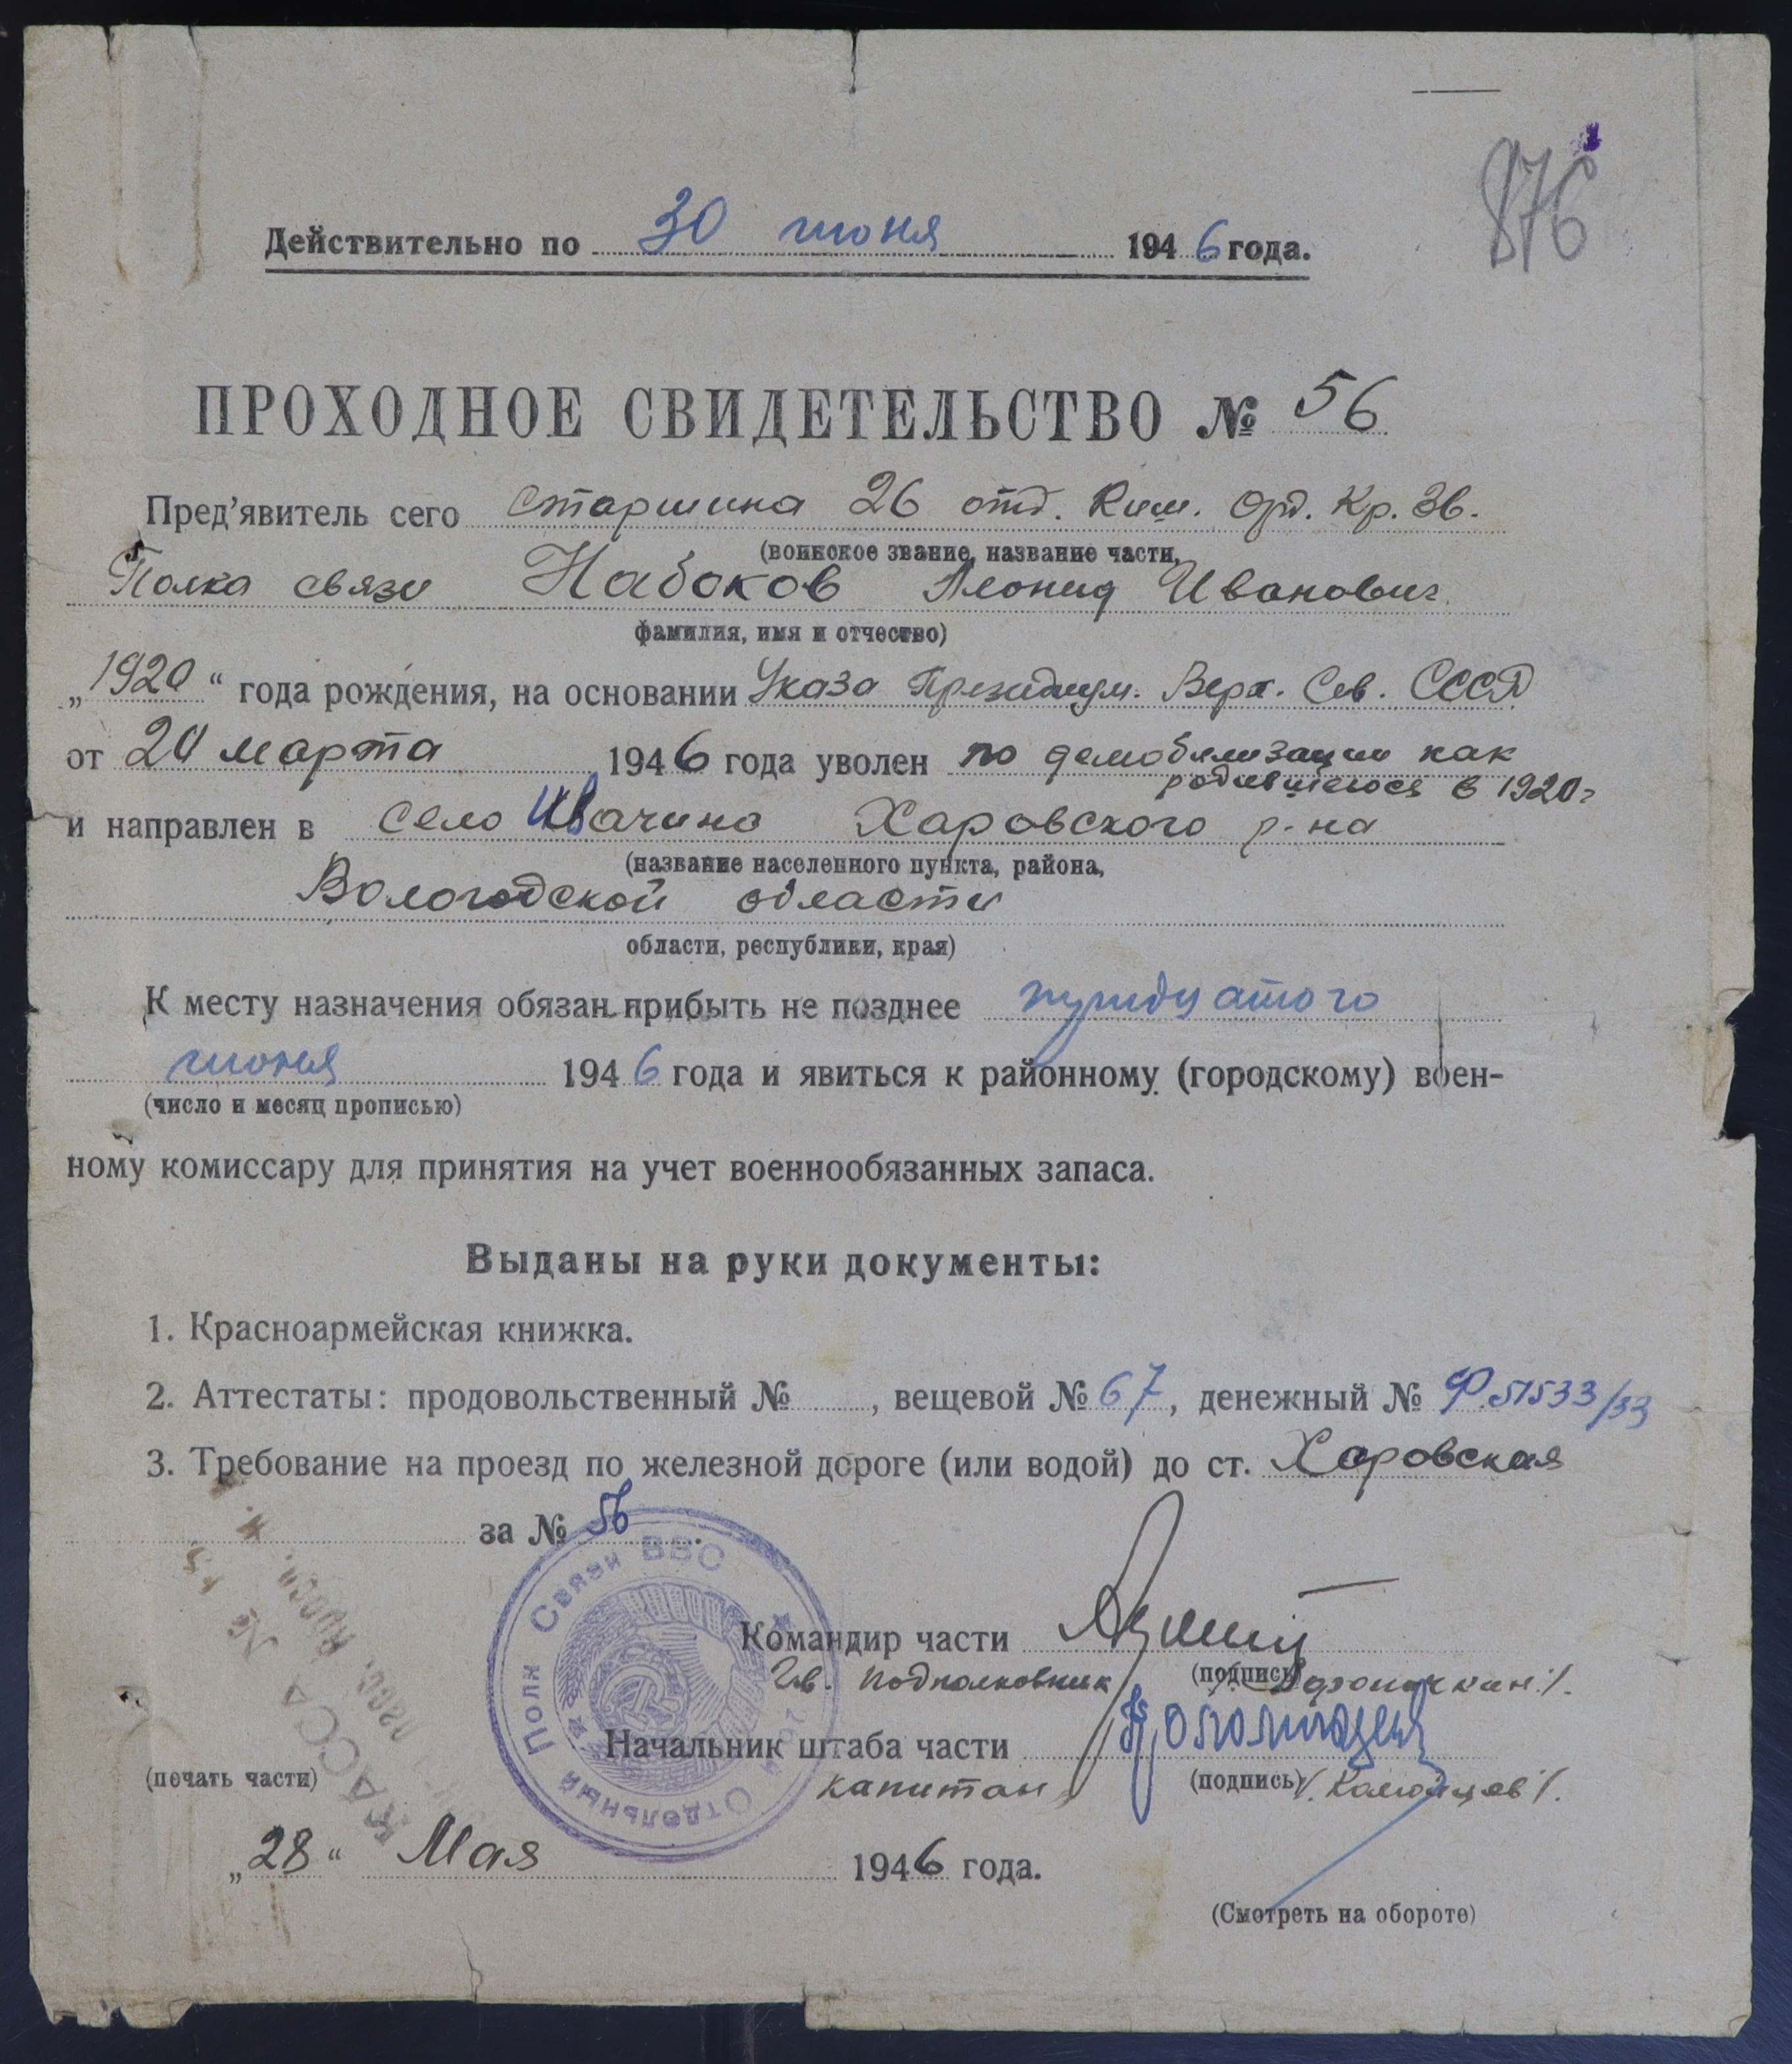 876
Действительно по 30 июня 1946 года.
ПРОХОДНОЕ СВИДЕТЕЛЬСТВО № 56
Пред'явитель сего старшина 26 отд. Киш. Орд. Кр. Зв.
(воинское звание, название части,
Полка связи Набоков Леонид Иванович
фамилия, имя и отчество)
„1920“ года рождения, на основании Указа Президиум. Верх. Сов. СССР
от 20 марта 1946 года уволен по демобилизации как
родившегося в 1920 г
и направлен в село Ивачино Харовского р-на
(название населенного пункта, района,
Вологодской области
области, республики, края)
К месту назначения обязан прибыть не позднее тридцатого
июня 1946 года и явиться к районному (городскому) воен-
(число и месяц прописью)
ному комиссару для принятия на учет военнообязанных запаса.
Выданы на руки документы:
1. Красноармейская книжка.
2. Аттестаты: продовольственный № , вещевой № 67, денежный № Ф.51533/33
3. Требование на проезд по железной дороге (или водой) до ст. Харовская
за № 56.
Полк Связи ВВС
Отдельный
КАССА №
Командир части
Гв. подполковник (подпись)
Начальник штаба части
капитан (подпись) /. Коломцев /.
(печать части)
„28“ Мая 1946 года.
(Смотреть на обороте)